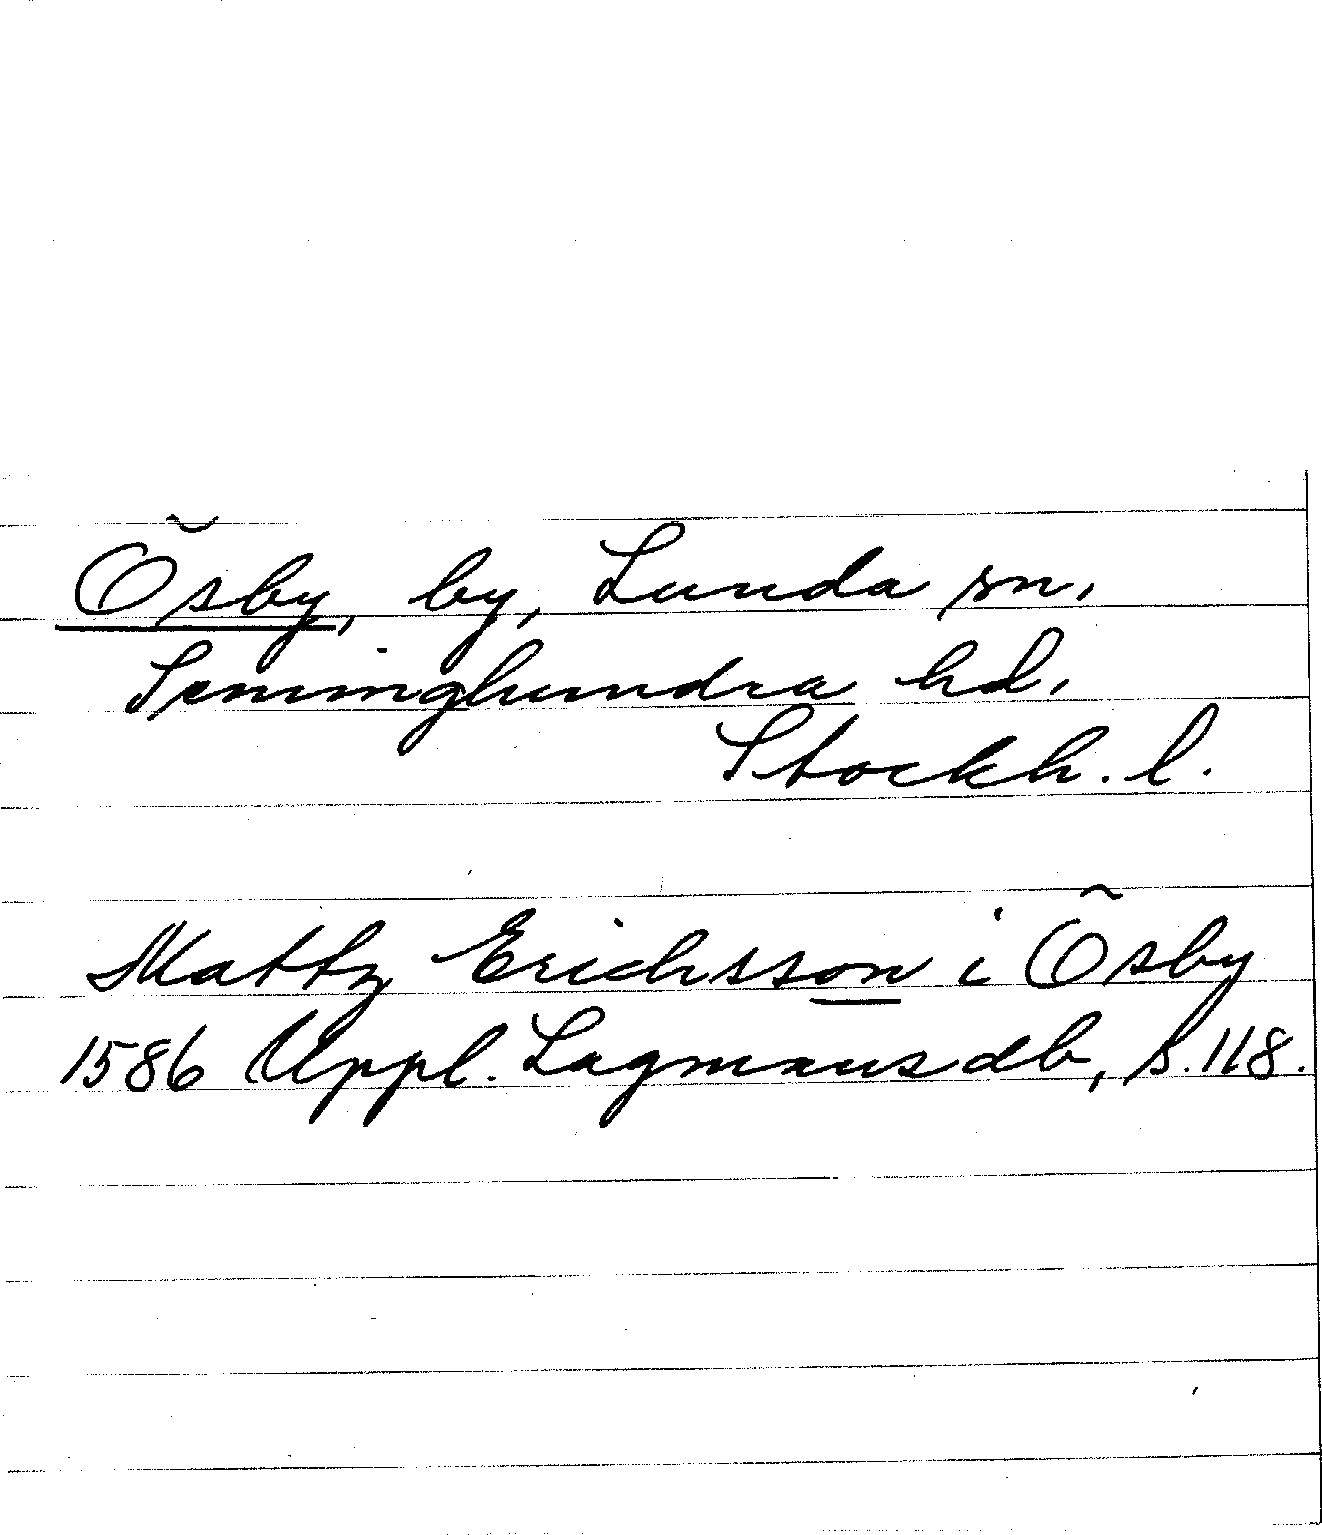 Ösby, by, Lunda sn,
Seminghundra hd,
Stockh. l.
Mattz Erichsson i Ösby
1586 Uppl. Lagmansdb, s. 118.